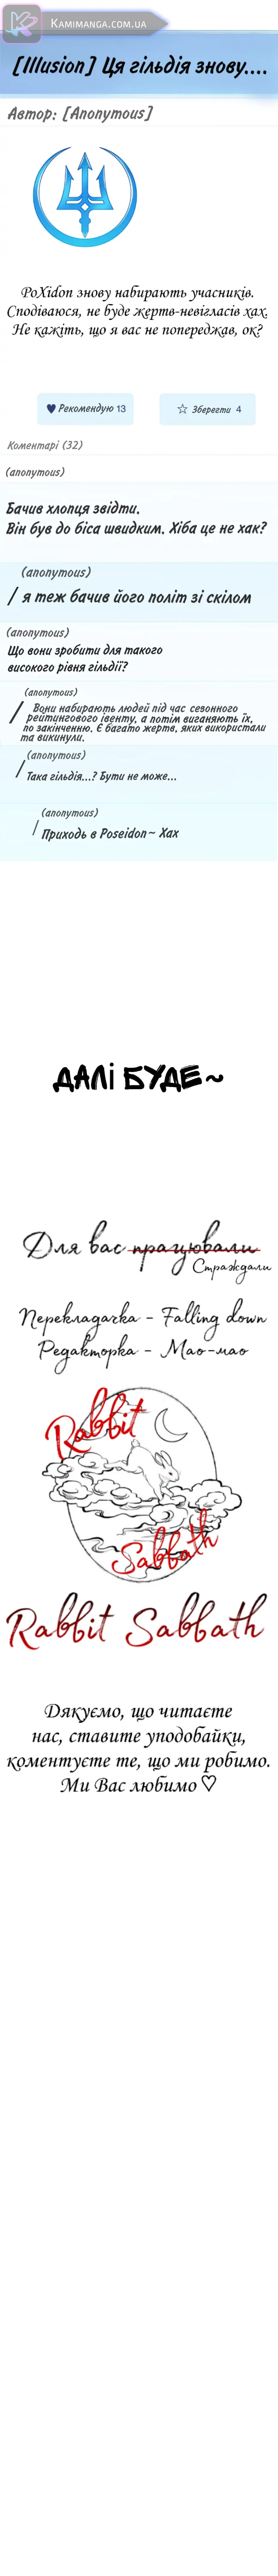 KAMIMANGA.COM.UA
[Illusion] Ця гільдія знову....
Автор: [Anonymous]
PoXidon знову набирають учасників.
Сподіваюся, не буде жертв-невігласів хах.
Не кажіть, що я вас не попереджав, ок?
Рекомендую 13
Зберегти 4
Коментарі (32)
(anonymous)
Бачив хлопця звідти.
Він був до біса швидким. Хіба це не хак?
(anonymous)
/ я теж бачив його політ зі скілом
(anonymous)
Що вони зробити для такого
високого рівня гільдії?
(anonymous)
Вони набирають людей під час сезонного
рейтингового івенту, а потім виганяють їх,
по закінченню. Є багато жертв, яких використали
та викинули.
(anonymous)
/ Така гільдія...? Бути не може...
(anonymous)
/ Приходь в Poseidon~ Хах
ДАЛІ БУДЕ~
Для вас працювали
Страждали
Перекладачка - Falling down
Редакторка - Мао-мао
Rabbit
Sabbath
Rabbit Sabbath
Дякуємо, що читаєте
нас, ставите уподобайки,
коментуєте те, що ми робимо.
Ми Вас любимо ♡